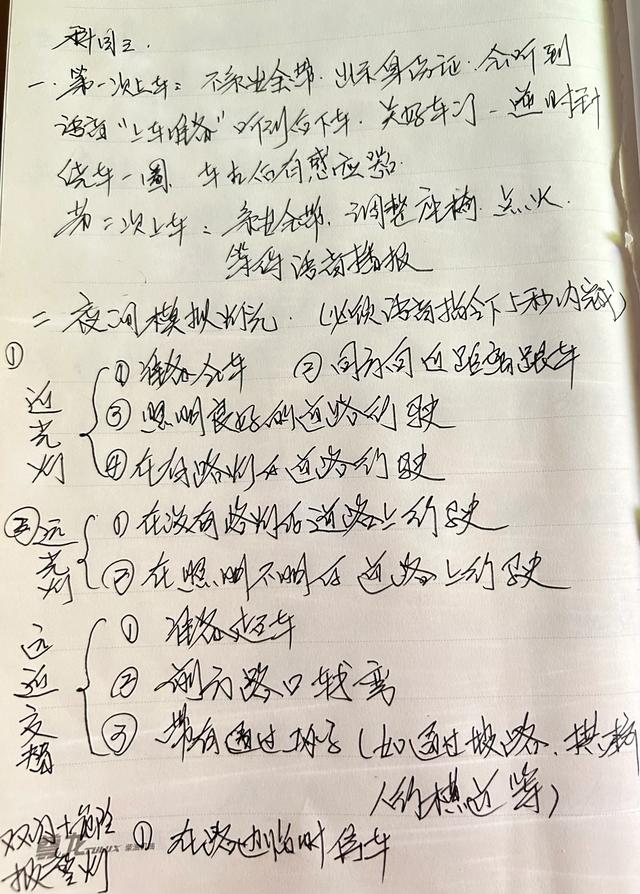 科目三.
一. 第一次上车: 不系安全带. 出示身份证. 会听到
语音"上车准备"听到后下车. 关好车门. 逆时针
绕车一圈. 车左右有感应器.
第二次上车: 系安全带. 调整座椅. 点火.
等待语音播报
二 夜间模拟灯光. (必须语音指令下5秒内完成)
① 近光灯
① 准备会车 ② 同方向近距离跟车
③ 照明良好的道路行驶
④ 在有路灯的道路行驶
② 远光灯
① 在没有路灯的道路上行驶
② 在照明不明的道路上行驶
远近交替
① 准备超车
② 前方路口转弯
③ 带有通过 (如通过坡路、拱桥
人行横道等)
双闪+
报警灯
① 在路边临时停车
TULUX